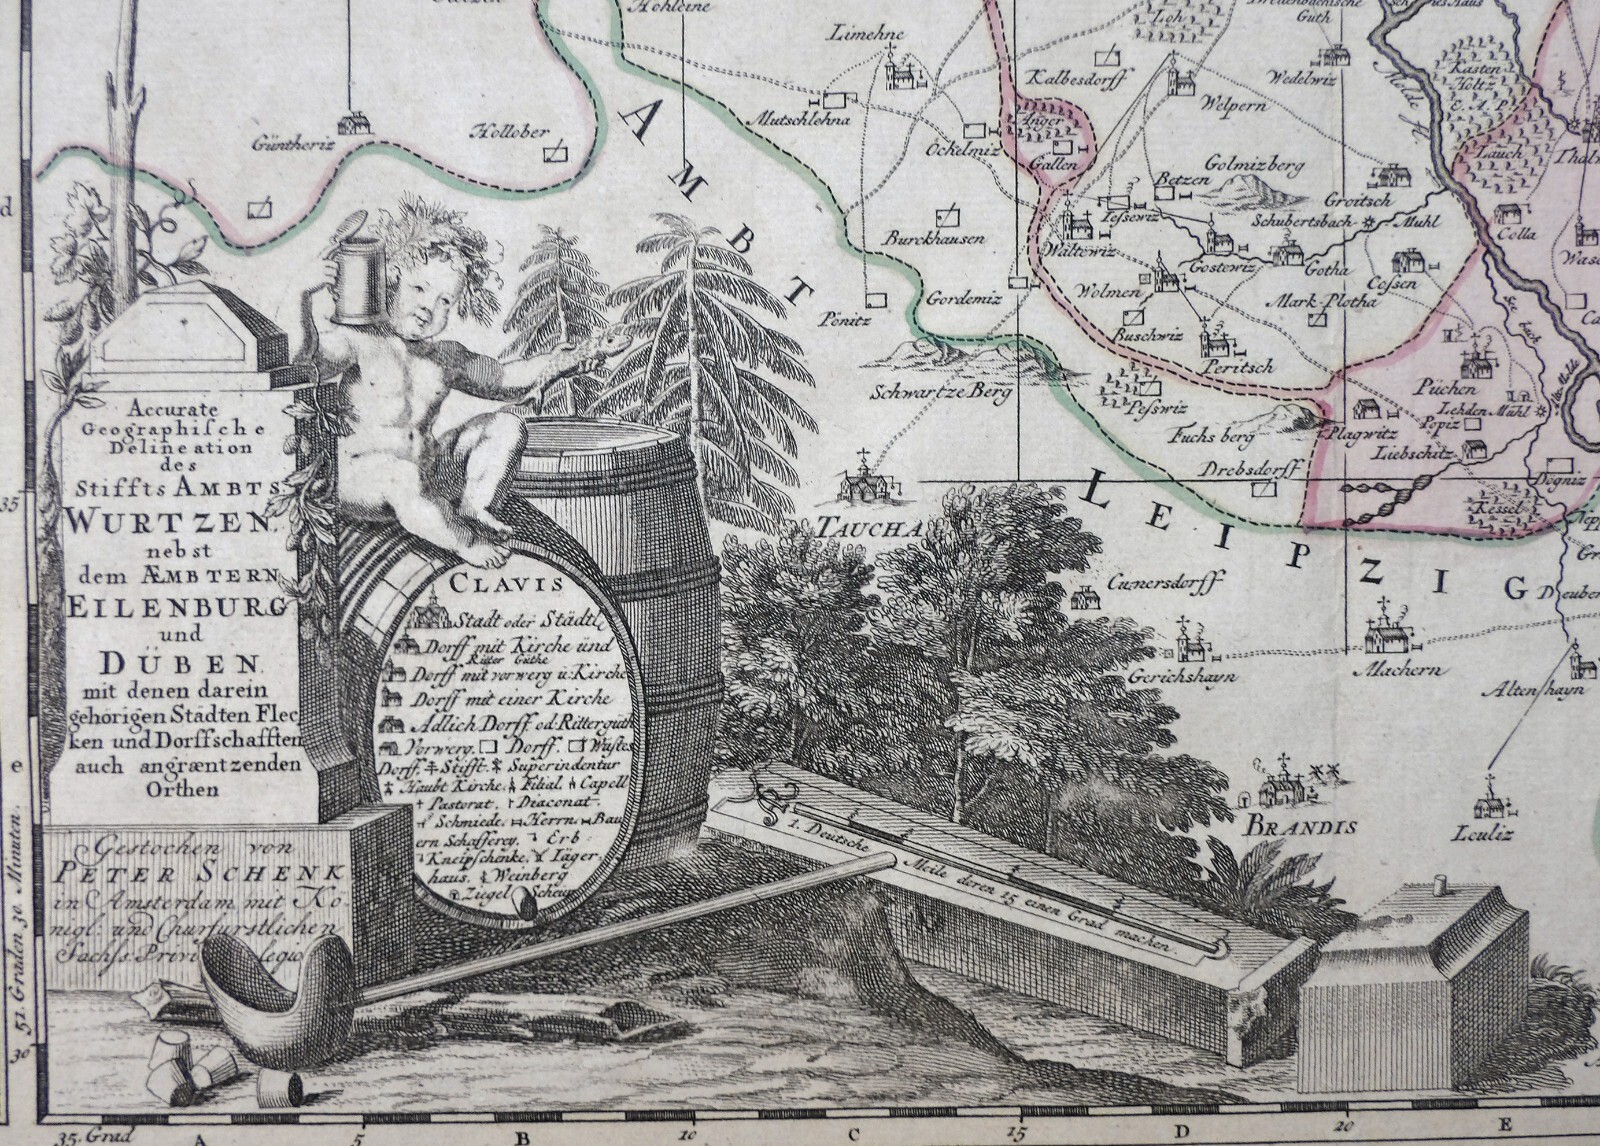 Hohleine
Limehne
Güntheriz
Hollober
Mutschlehna
Ockelmiz
Kalbesdorff
Loh
Guth
Wedelwiz
Welpern
Kasten
Holtz
C. A. P.
Mulde fl.
Anger
Gallen
Lauch
Golmizberg
Betzen
Groitsch
Schubertsbach
Muhl
Colla
Iessewiz
Burckhausen
Wältewiz
Gostewiz
Gotha
Cossen
Gordemiz
Wolmen
Mark Plotha
Pönitz
Buschwiz
Peritsch
Schwartze Berg
Pesswiz
Püchen
Lehden Mühl
Popiz
Fuchs berg
Plagwitz
Liebschitz
Drebsdorff
Dögniz
Kessel
AMBT LEIPZIG
TAUCHA
Cunersdorff
Gerichshayn
Machern
Deuben
Altenhayn
BRANDIS
Leuliz
Accurate
Geographische
Delineation
des
Stiffts AMBTS
WURTZEN.
nebst
dem ÆMBTERN
EILENBURG
und
DÜBEN
mit denen darein
gehörigen Städten Flec
ken und Dorffschafften
auch angræntzenden
Orthen
Gestochen von
PETER SCHENK
in Amsterdam mit Kö
nigl: und Churfurstlichen
Sachss. Privilegio
CLAVIS
Stadt oder Städtl
Dorff mit Kirche und
Ritter Guthe
Dorff mit vorwerg u: Kirche
Dorff mit einer Kirche
Adlich Dorff od. Ritterguth
Vorwerg. Dorff. Wüstes
Dorff. Stifft. Superindentur
Haubt Kirche. Filial. Capell
Pastorat. Diaconat.
Schmiede. Herrn. Bau
ern Schafferey. Erb:
Kneipschenke. Iäger
haus. Weinberg
Ziegel Scheun
1. Deutsche Meile deren 15 einen Grad machen.
d
35
e
51. Graden 30. Minuten.
30
35. Grad
A
5
B
10
C
15
D
20
E